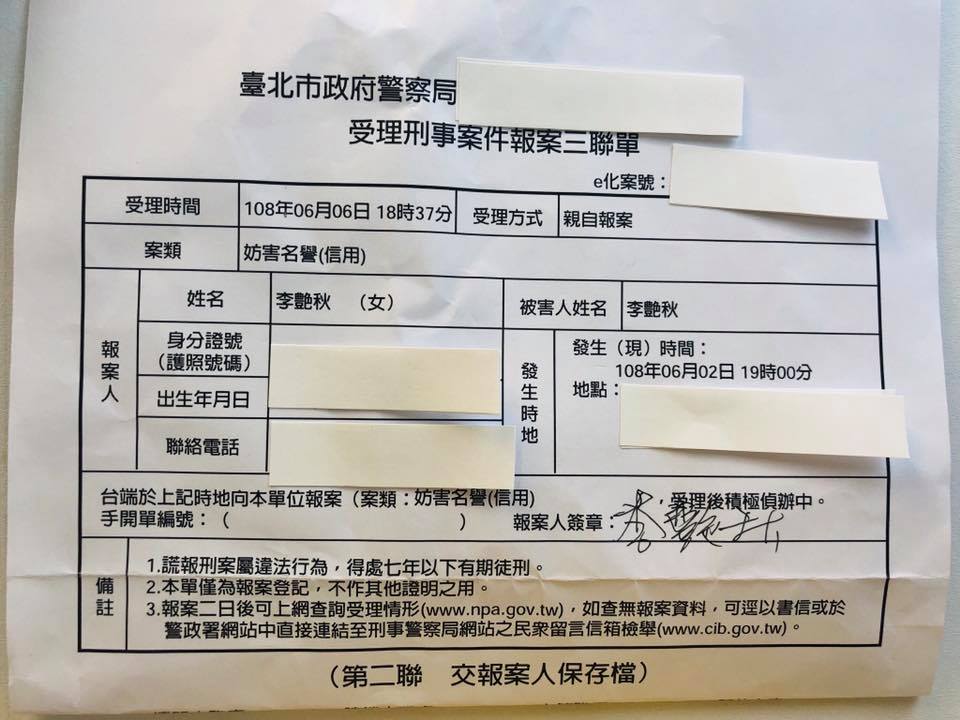 臺北市政府警察局
受理刑事案件報案三聯單
e化案號：
受理時間 108年06月06日 18時37分 受理方式 親自報案
案類 妨害名譽(信用)
報案人 姓名 李艷秋 （女） 被害人姓名 李艷秋
身分證號
(護照號碼)
出生年月日
聯絡電話
發生時地 發生（現）時間：
108年06月02日 19時00分
地點：
台端於上記時地向本單位報案（案類：妨害名譽(信用) ，受理後積極偵辦中。
手開單編號：（ ） 報案人簽章：李艷秋
備註 1.謊報刑案屬違法行為，得處七年以下有期徒刑。
2.本單僅為報案登記，不作其他證明之用。
3.報案二日後可上網查詢受理情形(www.npa.gov.tw)，如查無報案資料，可逕以書信或於
警政署網站中直接連結至刑事警察局網站之民眾留言信箱檢舉(www.cib.gov.tw)。
（第二聯 交報案人保存檔）